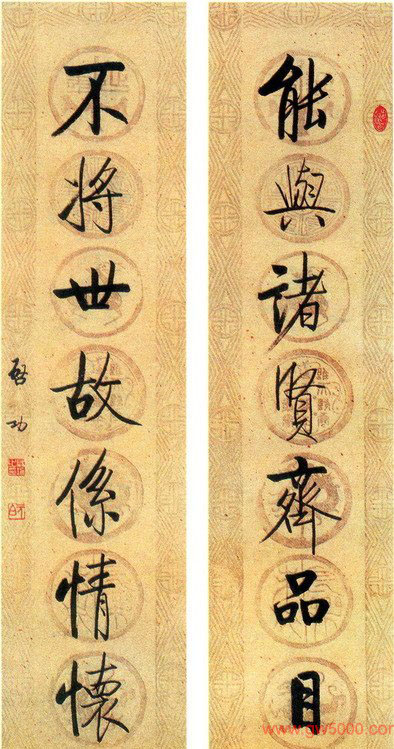 能與諸賢齊品目
不將世故係情懷
啓功
www.gw5000.com